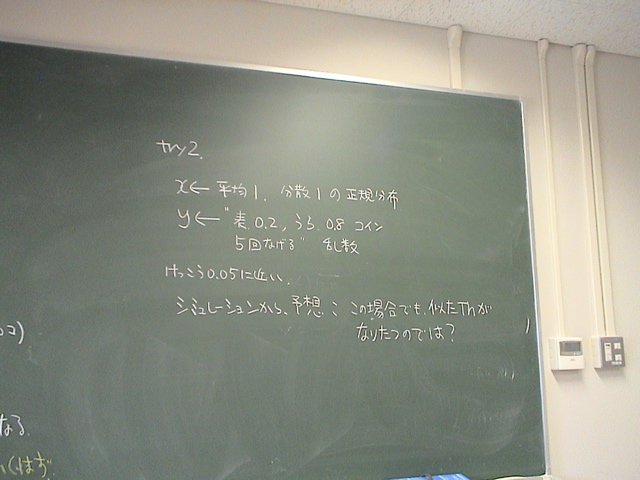 try2.
x← 平均1, 分散1の正規分布
y← "表 0.2, うら 0.8 コイン
5回なげる" 乱数
けっこう0.05に近い.
シミュレーションから、予想 : この場合でも、似たThが
なりたつのでは?
コ)
なる.
くはず.